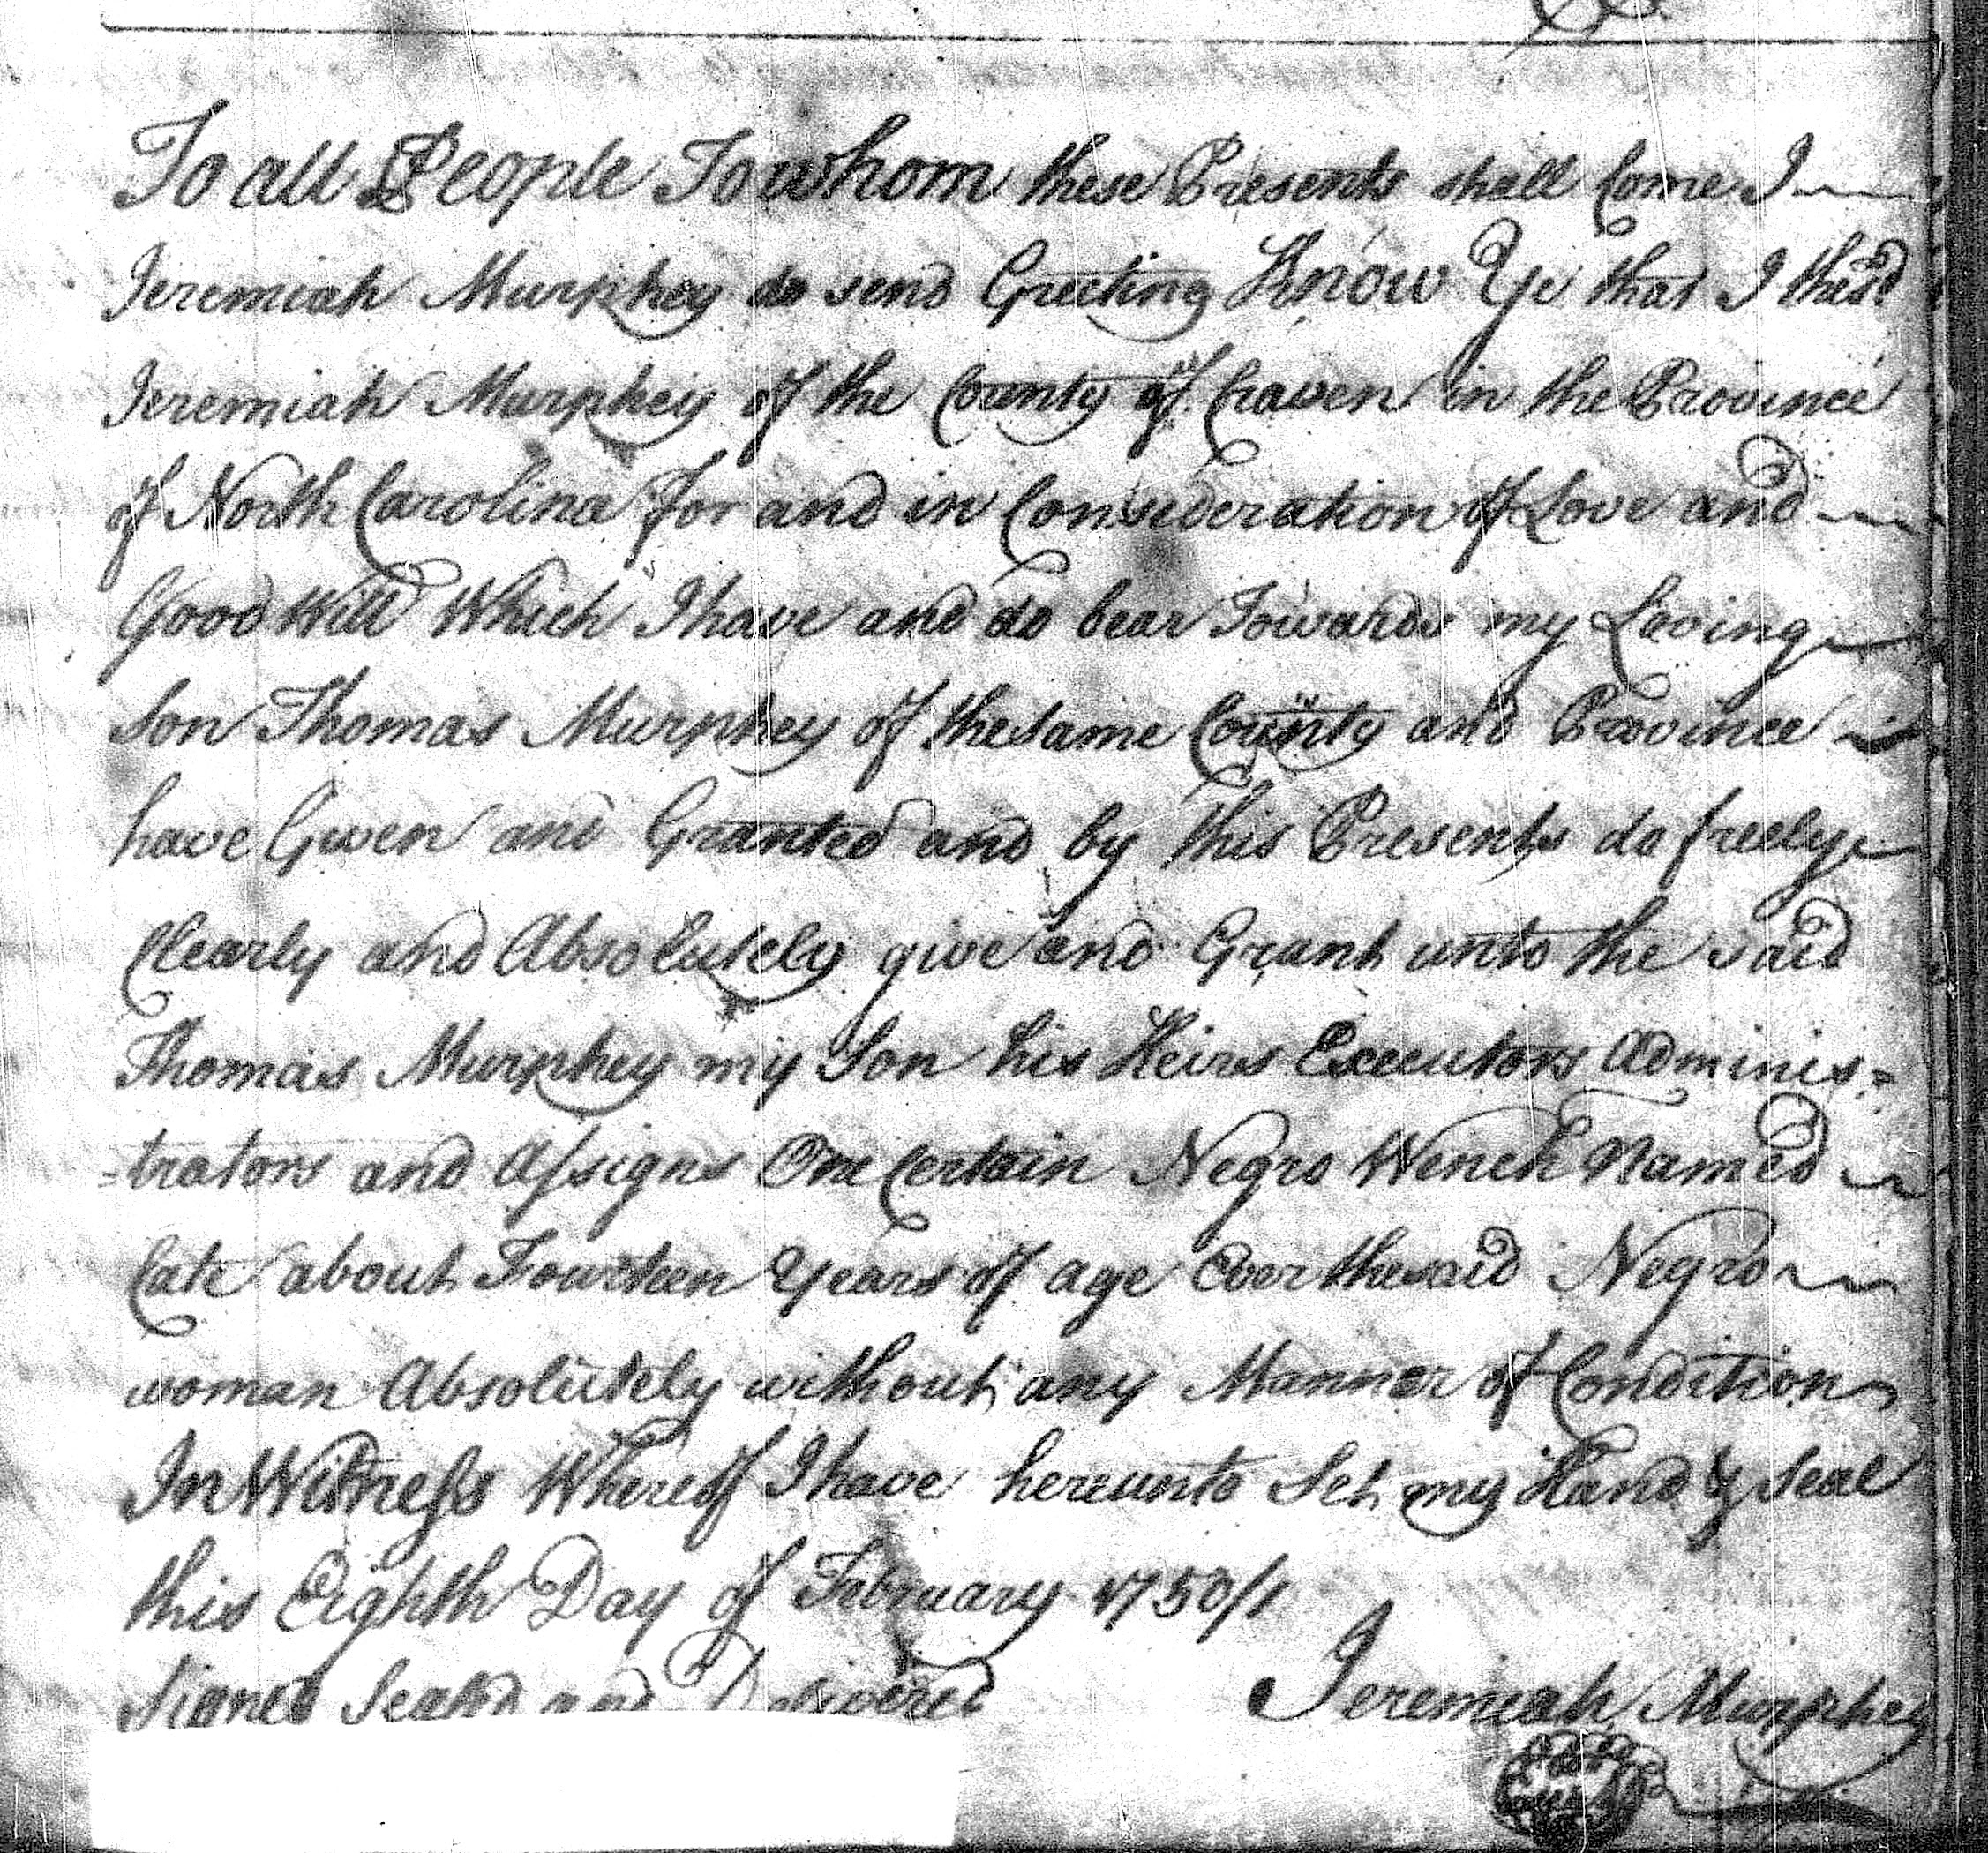 To all People To whom these Presents shall Come I
Jeremiah Murphey do send Greeting Know Ye that I the sd
Jeremiah Murphey of the County of Craven in the Province
of North Carolina for and in Consideration of Love and
Good Will Which I have and do bear Towards my Loving
Son Thomas Murphey of the same County and Province
have Given and Granted and by this Presents do freely
Clearly and Absolutely give and Grant unto the said
Thomas Murphey my Son his Heirs Executors Adminis=
=trators and Assigns One Certain Negro Wench Named
Cate about Fourteen Years of age Over the said Negro
woman Absolutely without any Manner of Condition
In Witness Whereof I have hereunto Set my Hand & Seal
this Eighth Day of February 1750/1
Signed Seald and Delivered
Jeremiah Murphey